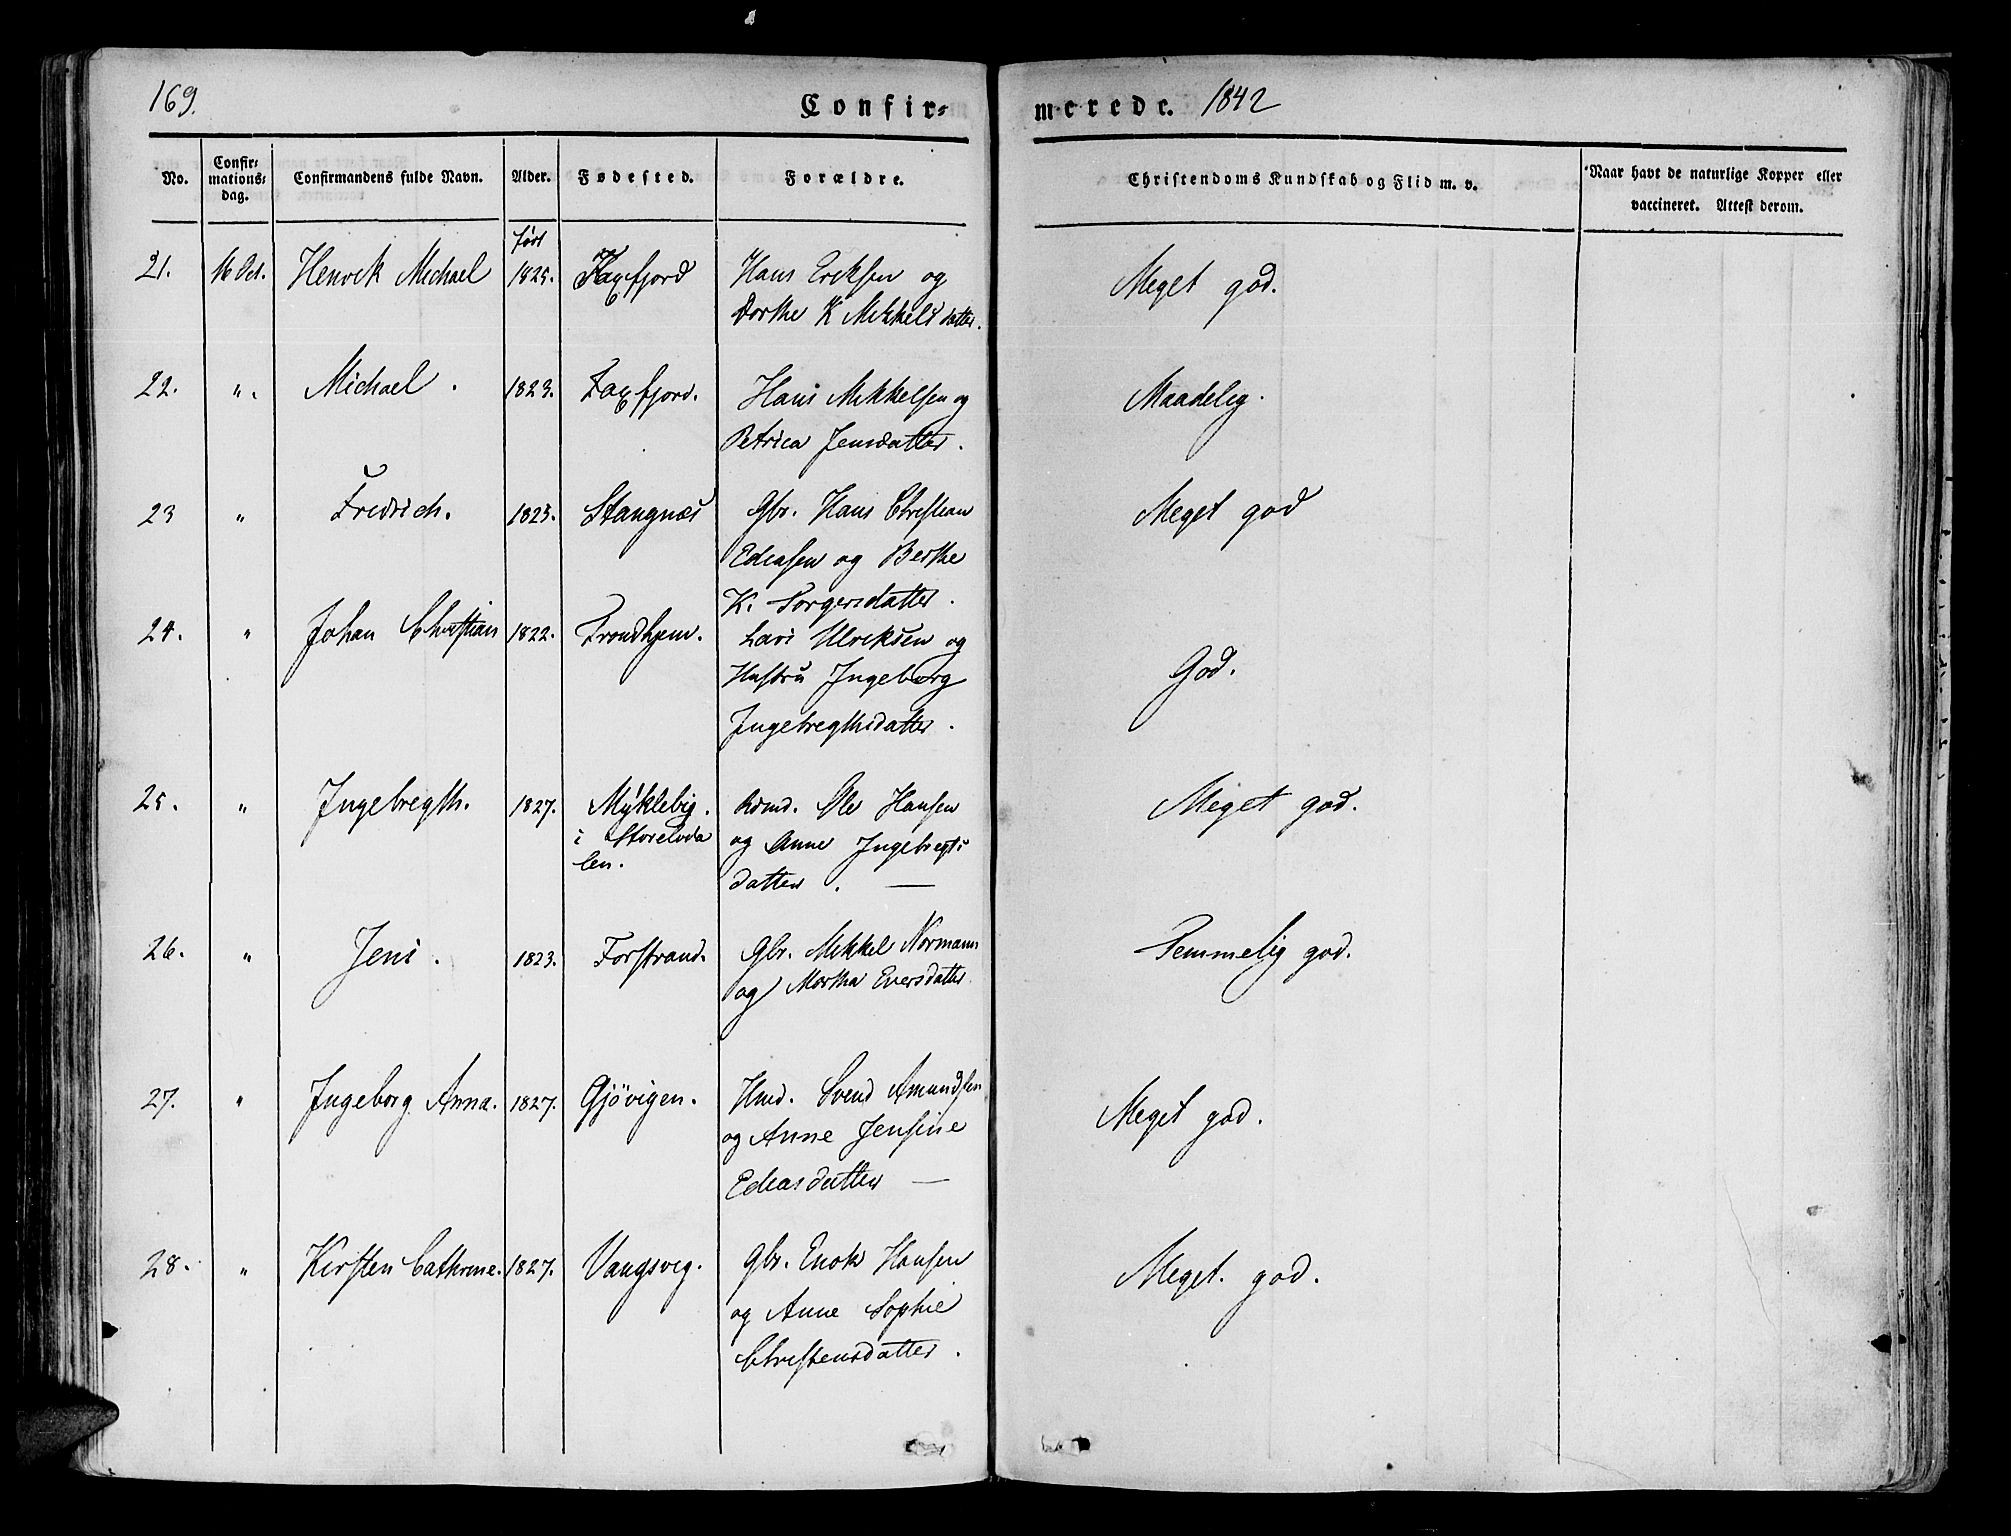 169.
Confir-
merede. 1842
No.
Confir-
mations-
dag.
Confirmandens fulde Navn.
Alder.
Fødested.
Forældre.
Christendoms Kundskab og Flid m. v.
Naar havt de naturlige Kopper eller
vaccineret. Attest derom.
født
21. 16 Oct. Henrek Michael 1825. Faxfjord Hans Eriksen og Meget god.
Dorthe K Mikkelsdatter.
22. ". Michael. 1823. Faxfjord. Hans Mikkelsen og Maadelig.
Petrica Jensdatter.
23 " Fredrich. 1825. Stangnæs Gbr. Hans Christian Meget god
Eliasen og Berthe
K. Torgersdatter.
24. " Johan Christian 1822. Trondhjem. Lars Ulriksen og God.
Hustru Ingeborg
Ingebregthsdatter.
25. " Ingebregth. 1827. Myklebig. Ole Hansen Meget god.
i Storelvda og Anne Ingebregts
len. datter. —
26. " Jens. 1823. Forstrand. Gbr. Mikkel Normann Temmelig god.
og Martha Eversdatter
27. " Ingeborg Anna. 1827. Gjövigen. Hmd. Svend Amundsen Meget god.
og Anne Jensine
Eliasdatter —
28. " Kirsten Cathrine. 1827. Vangsvig. Gbr. Enok Hansen Meget. god.
og Anne Sophie
Christensdatter.